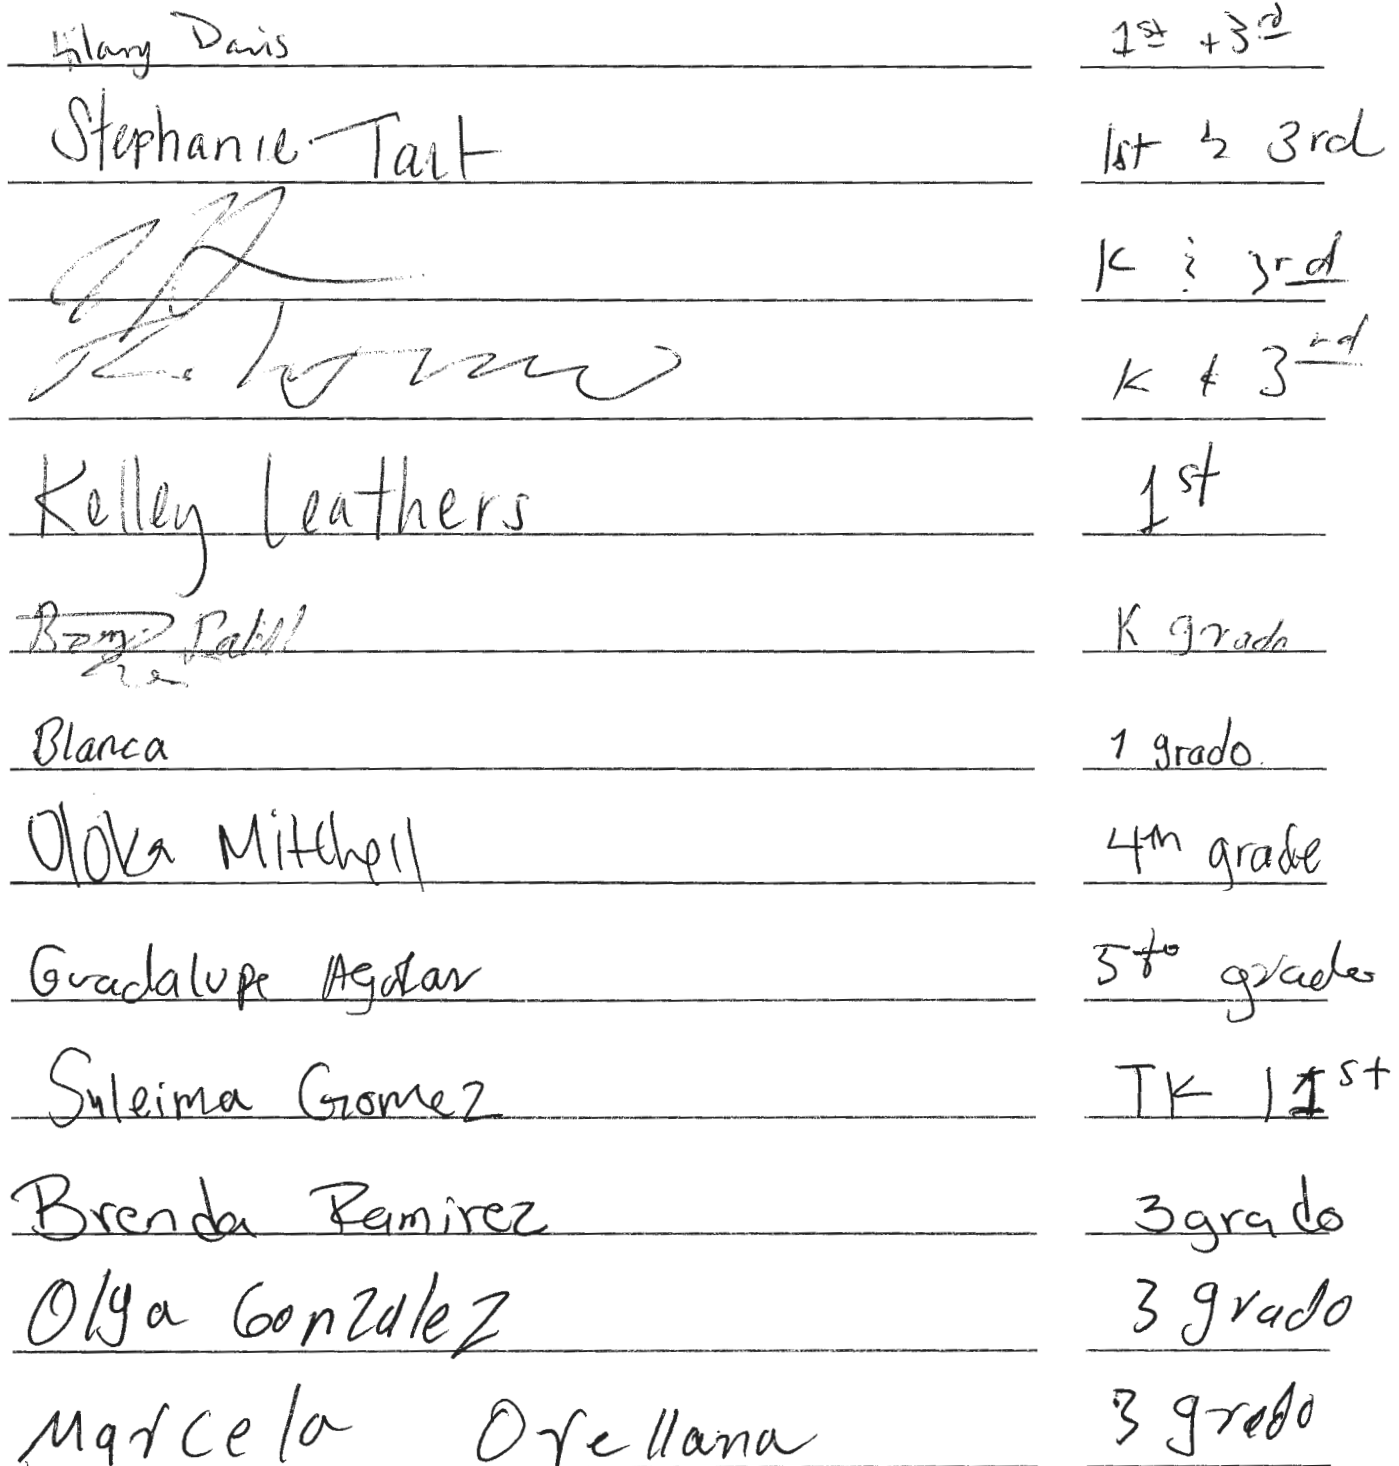 Hilary Davis 1st + 3rd
Stephanie Tait 1st & 3rd
K & 3rd
K & 3rd
Kelley Leathers 1st
K grado
Blanca 1 grado.
Mitchell 4th grade
Guadalupe 5to grado
Suleima Gomez TK | 1st
Brenda Ramirez 3 grado
Olga Gonzalez 3 grado
Marcela Orellana 3 grado